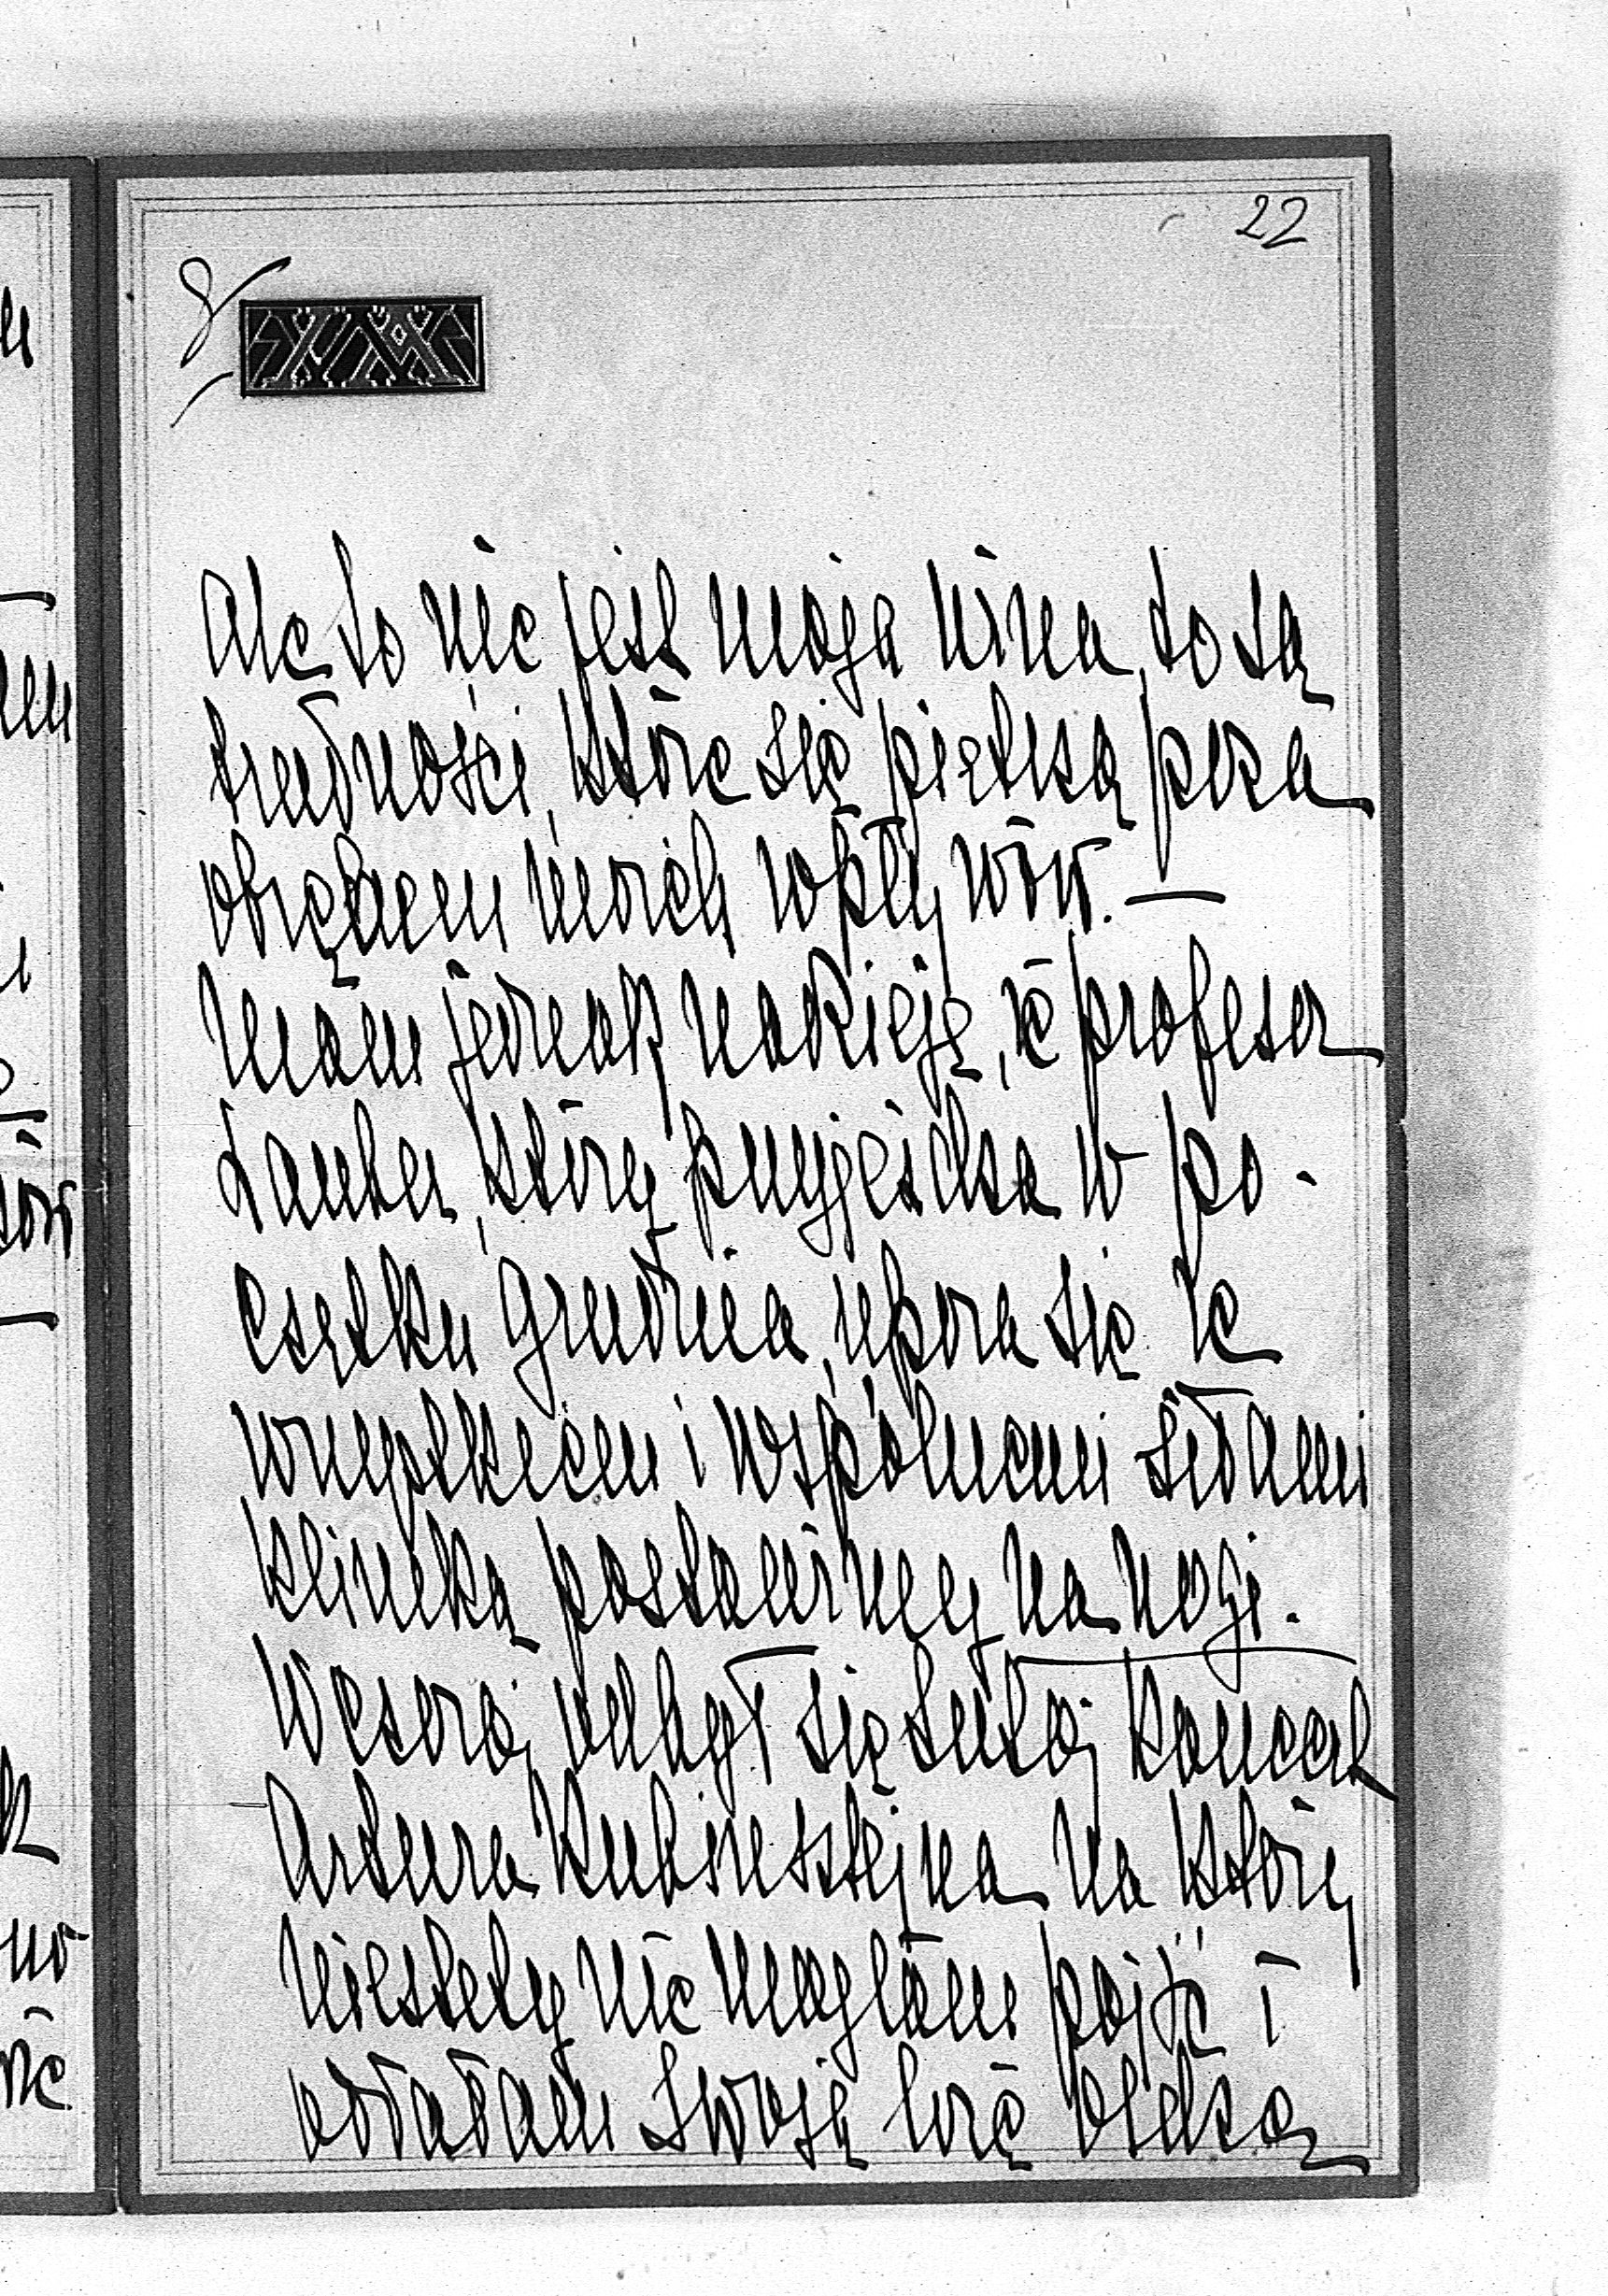 22
8/
Ale to nie jest moja wina, to są
trudności, które się piętrzą poza
obrębem moich wpływów. —
Mam jednak nadzieję, że profesor
Lauber, który przyjeżdża w po-
czątku grudnia, upora się ze
wszystkiem i wspólnemi siłami
klinikę postawimy na nogi.
Wczoraj odbył się tutaj koncert
Artura Rubinsteina na który
niestety nie mogłam pójść i
oddałam swoją lożę